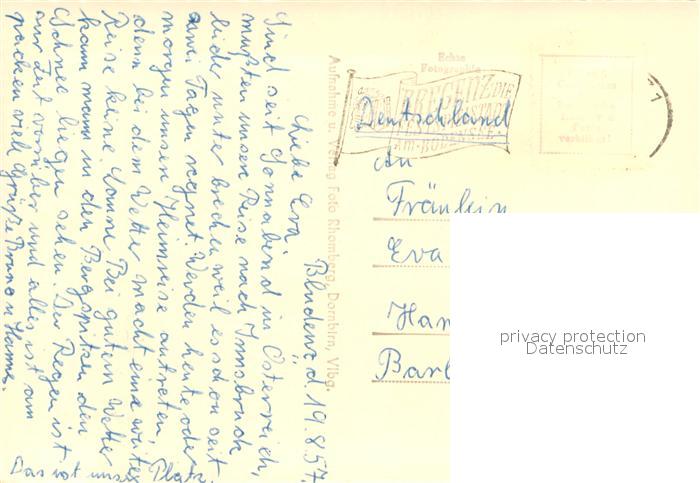 Bludenz, d. 19.8.57.
Liebe Eva!
Sind seit Sonnabend in Österreich,
mußten unsere Reise nach Innsbruck
leider unterbrechen weil es schon seit
zwei Tagen regnet. Werden heute oder
morgen unsere Heimreise antreten,
denn bei dem Wetter macht eine weitere
Reise keine Sonne. Bei gutem Wetter
kann mann in den Bergspitzen den
Schnee liegen sehen. Der Regen ist
zur Zeit vorüber und alles ist am
packen. Viele Grüße Bruno u. Hanna.
Das ist unser Platz.
Aufnahme u. Verlag Foto Rhomberg, Dornbirn, Vlbg.
Echte
Fotographie
BREGENZ DIE
FESTSPIELSTADT
AM BODENSEE
Deutschland
An
Fräulein
Eva
Han
Barl
privacy protection
Datenschutz